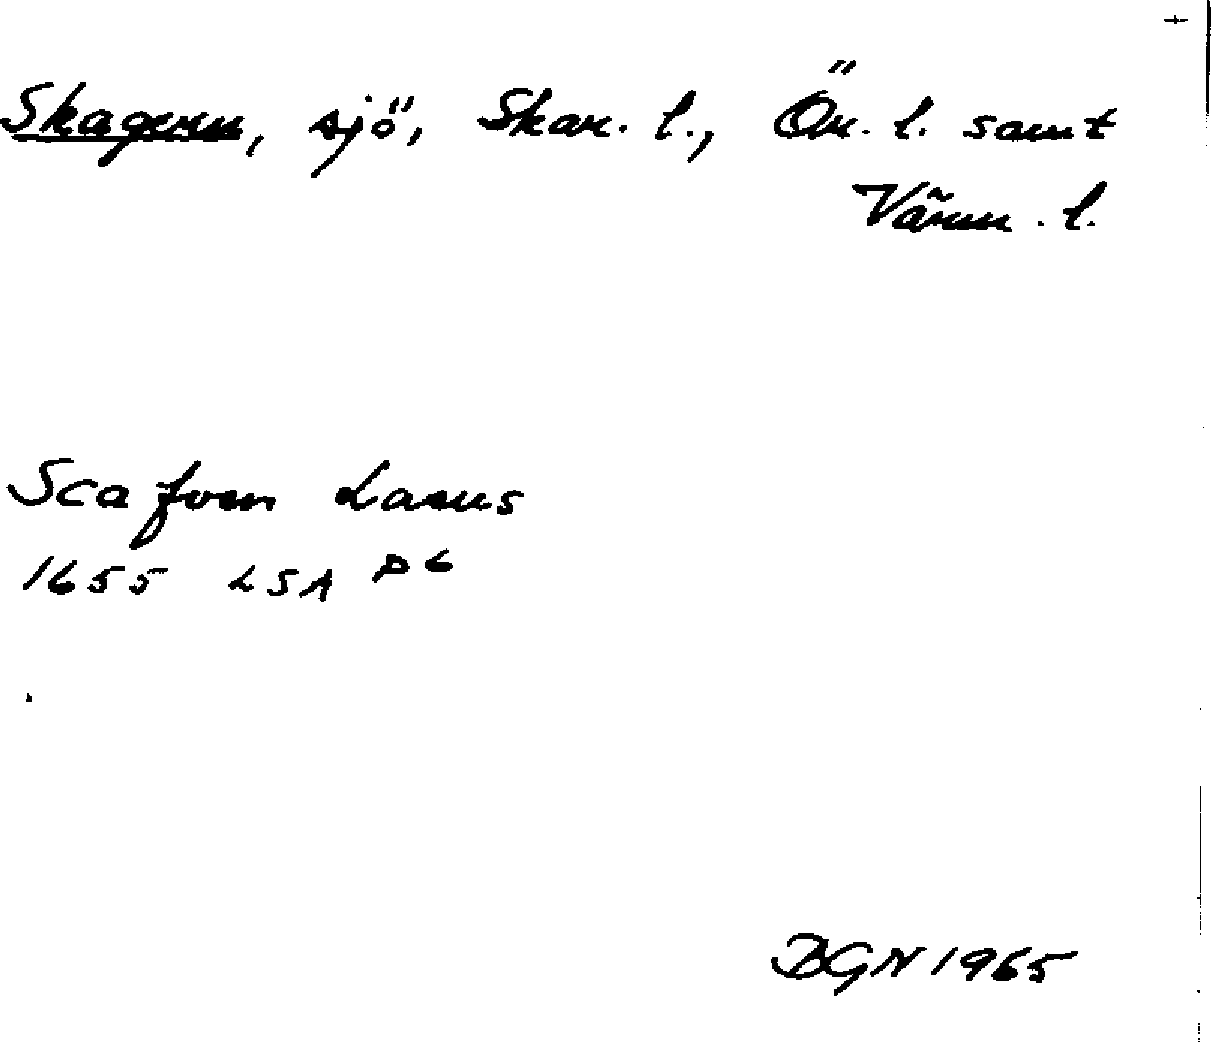 Skagern, sjö, Skar. l., Ör. l. samt
Värml. l.
Sca fven Lacus
1655 LSA P6
BGN 1965